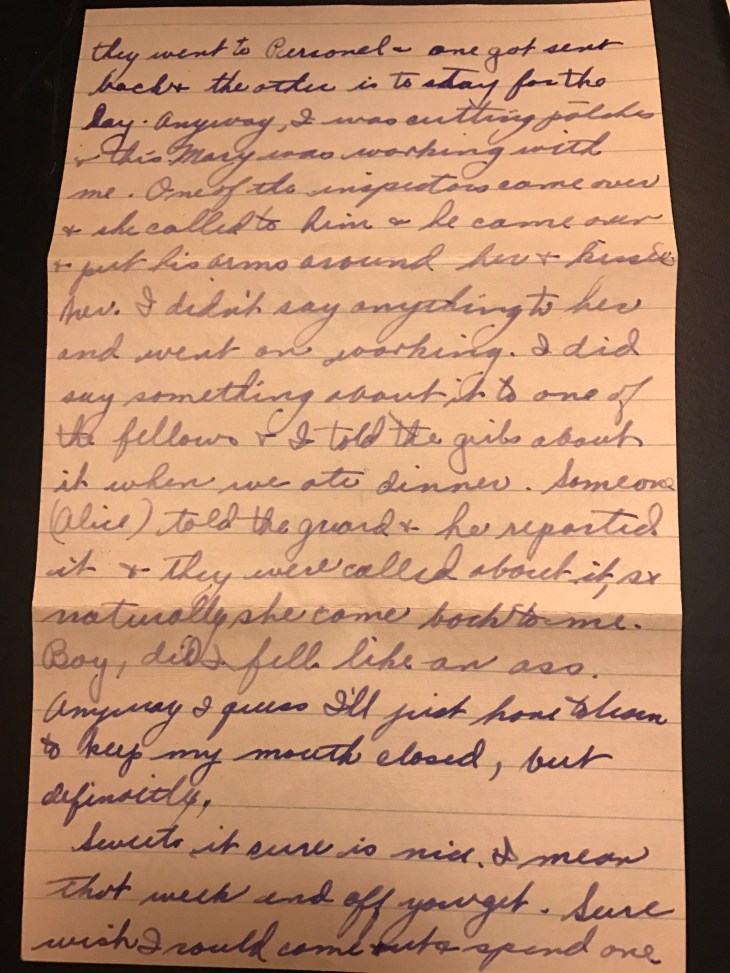 they went to Personel & one got sent
back & the other is to stay for the
day. Anyway, I was cutting patches
& this Mary was working with
me. One of the inspectors came over
& she called to him & he came over
& put his arms around her & kissed
her. I didn't say anything to her
and went on working. I did
say something about it to one of
the fellows & I told the girls about
it when we ate dinner. Someone
(Alice) told the guard & he reported
it & they were called about it, so
naturally she came back to me.
Boy, did I fell like an ass.
Anyway I guess I'll just have to learn
to keep my mouth closed, but
definitely.
Sweets it sure is nice. I mean
that week end off you get. Sure
wish I could come out & spend one